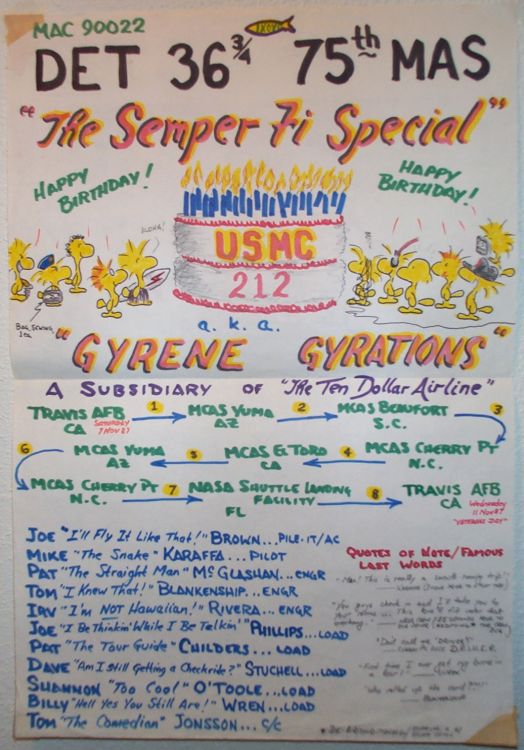 MAC 90022
DET 36 3/4 75th MAS
"The Semper Fi Special"
HAPPY BIRTHDAY!
HAPPY BIRTHDAY!
ALOHA!
USMC
212
a. k. a.
"GYRENE GYRATIONS"
A SUBSIDIARY OF "The Ten Dollar Airline"
TRAVIS AFB CA SATURDAY 7 NOV 87
1
MCAS YUMA AZ
2
MCAS BEAUFORT S.C.
3
MCAS CHERRY PT N.C.
4
MCAS EL TORO CA
5
MCAS YUMA AZ
6
MCAS CHERRY PT N.C.
7
NASA SHUTTLE LANDING FACILITY FL
8
TRAVIS AFB CA Wednesday 11 Nov 87 "VETERANS DAY"
JOE "I'll Fly It Like That!" BROWN...PILE-IT/AC
MIKE "The Snake" KARAFFA...PILOT
PAT "The Straight Man" McGLASHAN...ENGR
TOM "I Knew That!" BLANKENSHIP...ENGR
IRV "I'm NOT Hawaiian!" RIVERA...ENGR
JOE "I Be Thinkin' While I Be Talkin'" PHILLIPS...LOAD
PAT "The Tour Guide" CHILDERS...LOAD
DAVE "Am I Still Getting a Checkride?" STUCHELL...LOAD
SHANNON "Too Cool" O'TOOLE...LOAD
BILLY "Hell Yes You Still Are!" WREN...LOAD
TOM "The Comedian" JONSSON...C/C
QUOTES OF NOTE/FAMOUS
LAST WORDS